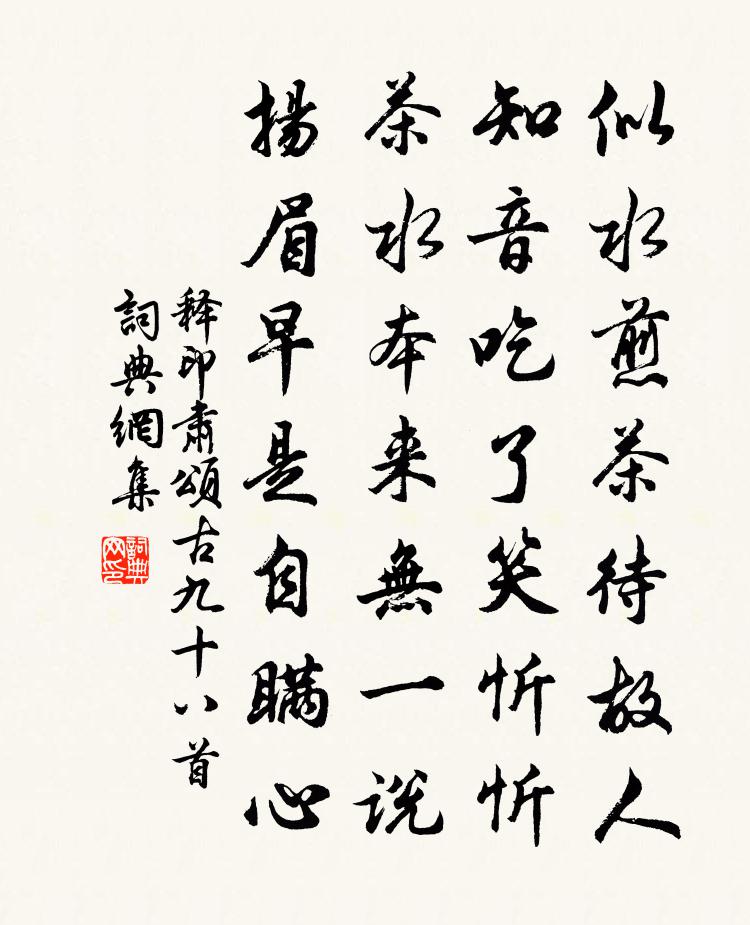 似水煎茶待故人
知音吃了笑忻忻
茶水本来無一説
揚眉早是自瞞心
释印肅頌古九十八首
詞典網集
詞典网印